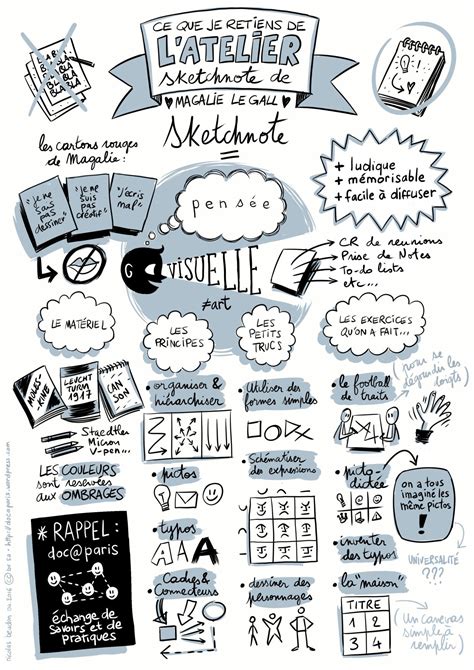 BLA BLA
BLA BLA
BLA BLA
BLA
CE QUE JE RETIENS DE
L'ATELIER
sketchnote de
MAGALIE LE GALL
Sketchnote
=
les cartons rouges
de Magalie :
"je ne
sais
pas
dessiner"
"je ne
suis
pas
créatif"
"j'écris
mal"
pensée
+ ludique
+ mémorisable
+ facile à diffuser
G
VISUELLE
≠art
CR de reunions
Prise de Notes
To-do lists
etc...
LE MATÉRIEL
LES
PRINCIPES
LES
PETITS
TRUCS
LES EXERCICES
QU'ON A FAIT...
MOLES-
KINE
LEUCHT
TURM
1917
CAN
SON
Staedtler
Micron
V-pen...
LES COULEURS
sont reservées
aux OMBRAGES
* RAPPEL :
doc@paris
échange de
savoirs et de
pratiques
• organiser &
hiérarchiser
• pictos
• typos
A A A
• Cadres &
connecteurs
• Utiliser des
formes simples
• Schématiser
des expressions
• dessiner des
personnages
• le football
de traits
(pour se
dégourdir les
doigts)
• picto-
dictée
on a tous
imaginé les
même pictos
!
• inventer
des typos
UNIVERSALITÉ
???
• la "maison"
TITRE
1 2
3 4
(Un canevas
simple à
remplir)